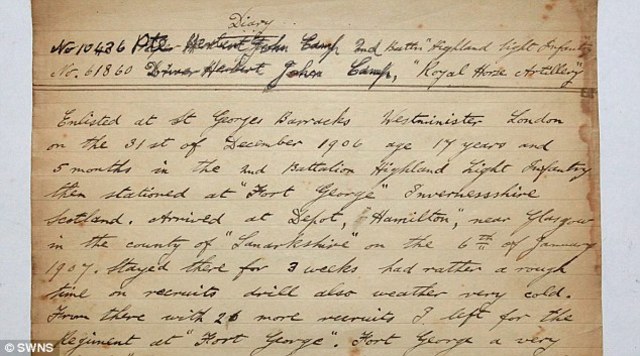 Diary
No 10436 Pte Herbert John Camp 2nd Battn "Highland Light Infantry
No. 61860 Driver Herbert John Camp, "Royal Horse Artillery"
Enlisted at St Georges Barracks Westminister London
on the 31st of December 1906 age 17 years and
5 months in the 2nd Battalion Highland Light Infantry
then stationed at "Fort George" Inverhessshire
Scotland. Arrived at Depot, "Hamilton", near Glasgow
in the county of "Lanarkshire" on the 6th of January
1907. Stayed there for 3 weeks had rather a rough
time on recruits drill also weather very cold.
From there with 26 more recruits I left for the
Regiment at "Fort George". Fort George a very
© SWNS